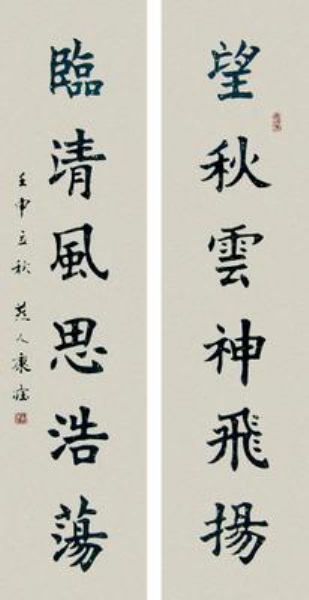 望秋雲神飛揚
臨清風思浩蕩
壬申立秋 燕人康